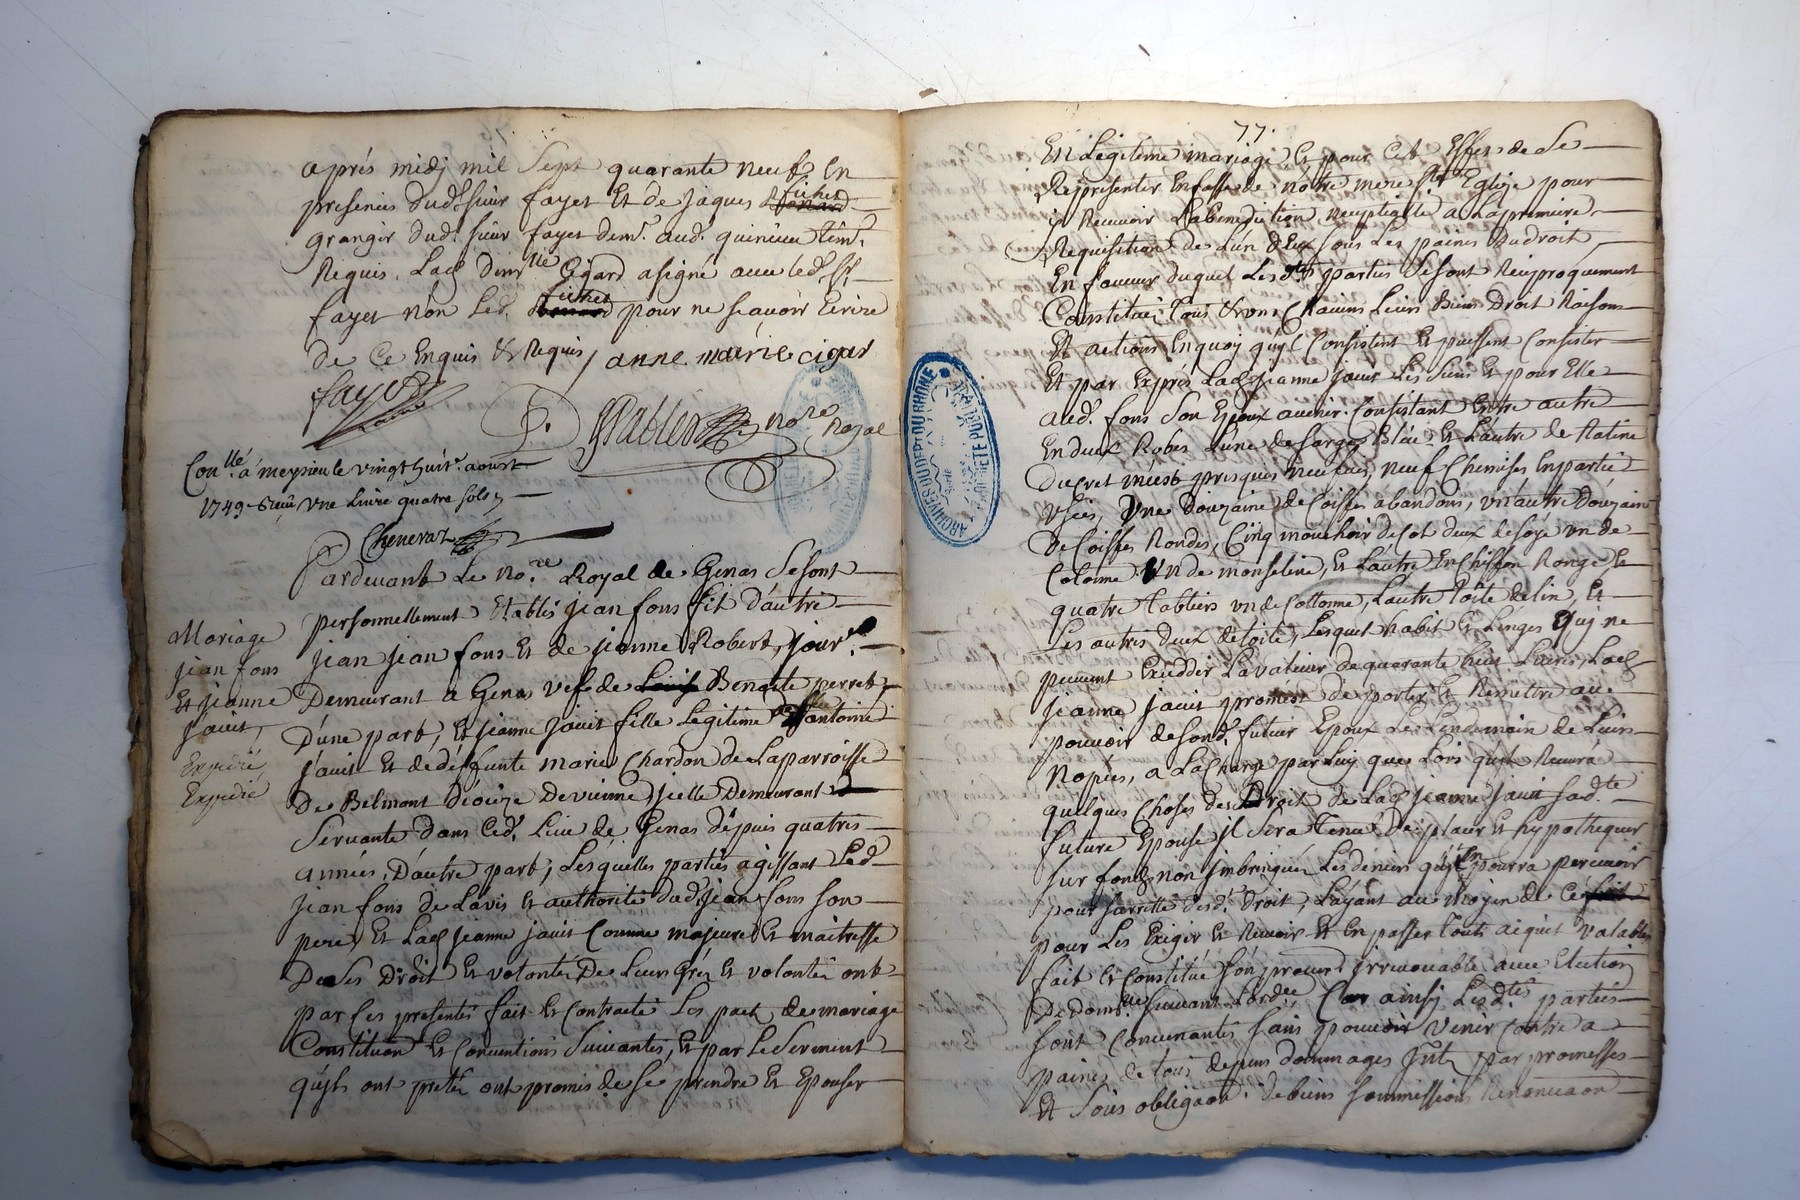 après midj mil Sept quarante neuf en
presences dud. sieur fayet Et de jaques fichet
granger dud. sieur fayet dem.t aud. quincieu têm.
Requis. Lad. dem.lle Cigard a signé avec led. Sr
fayet non Led. fichet pour ne scavoir Ecrire
de Ce Enquis & Requis / anne marie cigar
fayet
no.re Royal
Con.llé a meysieu le vingt huit. aoust
1749 Reçu Une Livre quatre sols
Chenevat
Pardevant Le No.re Royal de Genas Se sont
personnellement Etablis jean fons fils d'autre
jean jean fons Et de jeanne Robert, jour.er
Mariage
jean fons
Et jeanne
javit
Expédié
Expédié
Demeurant a Genas vefs de Benoite perret
D'une part, Et jeanne javit fille Legitime d'antoine
javit Et de deffunte marie Chardon de La parroisse
De Belmont dioceze De vienne, jcelle Demeurant
Servante dans Ced. Lieu de Genas depuis quatres
années, D'autre part, Lesquelles parties agissant Led.
jean fons de L'avis Et authorité dud. jean fons son
pere, Et Lad. jeanne javit Comme majeure Et maîtresse
De Ses Droit Et volontés De Leurs Grés Et volonté ont
par Ces presentes fait Et Contracté Les pact de mariage
Constituon Et Conventions Suivantes, Et par Le Serment
qu'jls ont preté ont promis de Se prendre Et Epouser
77.
En Legitime mariage Et pour Cet Effet de Se
Representer En fasse de notre mere Ste Eglize pour
y Recevoir La Benediction Nuptialle a La premiere
Requisition de L'un d'Eux sous Les paines du droit,
En faveur duquel Les d.tes parties Se sont Reciproquement
Constitué Tous & uns Chacuns Leurs Biens Droit Raisons
Et actions En quoy qu'jls Consistent Et puissent Consister
Et par Exprés Lad. jeanne javit Les Siens Et pour Elle
aud. fons Son Epoux avenir Consistant Entre autre
En deux Robes L'une de sarge bleue Et L'autre de Ratine
du cret presques neufves, neuf Chemises En partie
Usées, Une Douzaine de Coiffes abandons, un autre Douzaine
de Coiffes Rondes, Cinq mouchoir de Col deux de soye un de
Cotonne Un de mousseline, Et L'autre En Chiffon Rouge Et
quatre Tabliers un de Cottonne, L'autre Toile de lin, Et
Les autres deux de toile, Lesquels habit Et Linges Qui ne
peuvent Exceddér La valleur de quarante huit Livres, Lad.
jeanne javit promest de porter Et Remettre au
pouvoir de Sond. futur Epoux Le Lendemain de Leurs
Nopces, a La Charge par Luy que Lors qu'jl Recevra
quelques Choses des Droit de Lad. jeanne javit sad.te
future Epouse jl Sera Tenus De placer Et hypothequer
sur fonds non jmbringués Les deniers qu'jl En pourra percevoir
pour desd. Droit, L'ayant au Moyen de Ce
pour Les Exiger Et Recevoir Et En passer Touts aiquit valables
fait Et Constitué Son procur.r jrrevocable avec Election
De dom.lle Suivant L'ord.ce Car ainsj Lesd.tes parties
sont Convenantes sans pouvoir Venir Contre a
paines de tous depens dommages jnt. par promesses
Et Sous obligaon. de biens soummissions Renonciaon
ARCHIVES DU DEPT DU RHÔNE